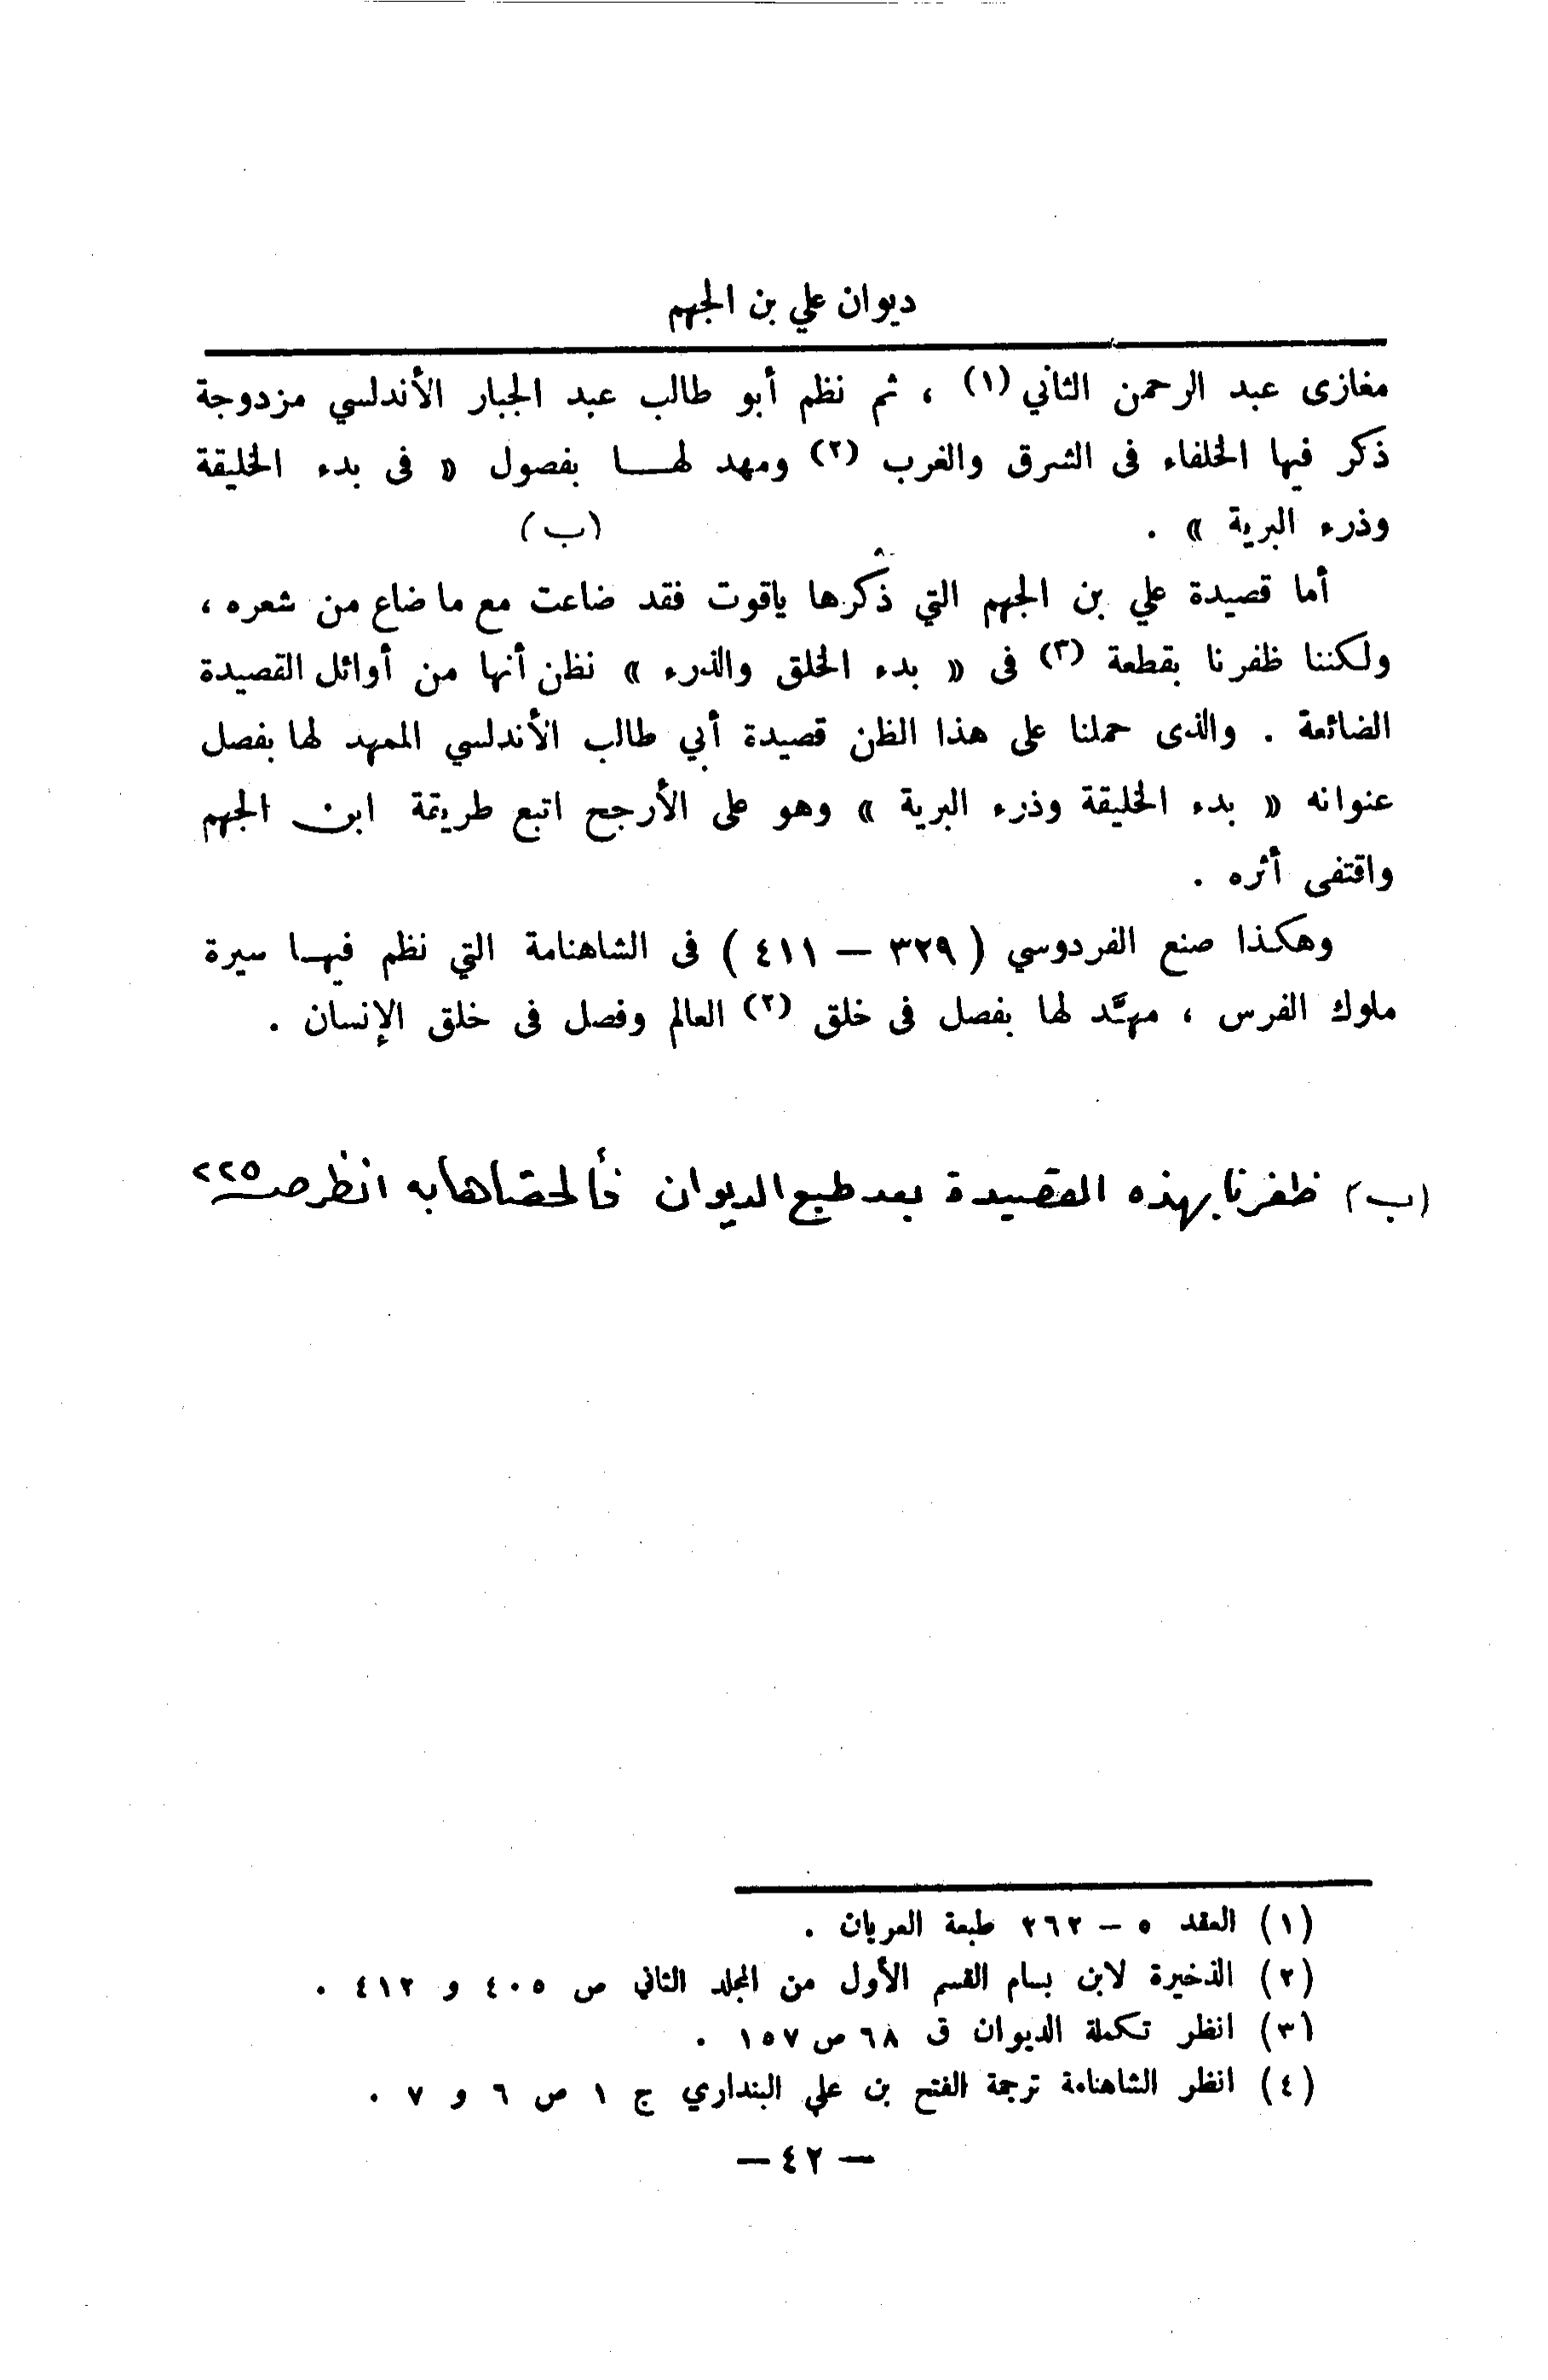 ديوان علي بن الجهم
مغازى عبد الرحمن الثاني (١) ، ثم نظم أبو طالب عبد الجبار الأندلسي مزدوجة
ذكر فيها الخلفاء فى الشرق والغرب (٢) ومهد لهــا بفصول « فى بدء الخليقة
وذرء البرية » . (ب)
أما قصيدة علي بن الجهم التي ذكرها ياقوت فقد ضاعت مع ما ضاع من شعره ،
ولكننا ظفرنا بقطعة (٣) فى « بدء الخلق والذرء » نظن أنها من أوائل القصيدة
الضائعة . والذى حملنا على هذا الظن قصيدة أبي طالب الأندلسي الممهد لها بفصل
عنوانه « بدء الخليقة وذرء البرية » وهو على الأرجح اتبع طريقة ابن الجهم
واقتفى أثره .
وهكذا صنع الفردوسي ( ٣٢٩ — ٤١١ ) فى الشاهنامة التي نظم فيهـا سيرة
ملوك الفرس ، مهَّد لها بفصل فى خلق (٢) العالم وفصل فى خلق الإنسان .
(ب) ظفرنا بهذه القصيدة بعد طبع الديوان فألحقناها به انظر صـ ٢٢٥
(١) العقد ٥ — ٢٦٢ طبعة العريان .
(٢) الذخيرة لابن بسام القسم الأول من المجلد الثاني ص ٤٠٥ و ٤١٢ .
(٣) انظر تكملة الديوان ق ٦٨ ص ١٥٧ .
(٤) انظر الشاهنامة ترجمة الفتح بن علي البنداري ج ١ ص ٦ و ٧ .
— ٤٢ —